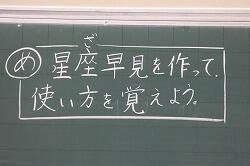 ざ
め 星座早見を作って、
使い方を覚えよう。